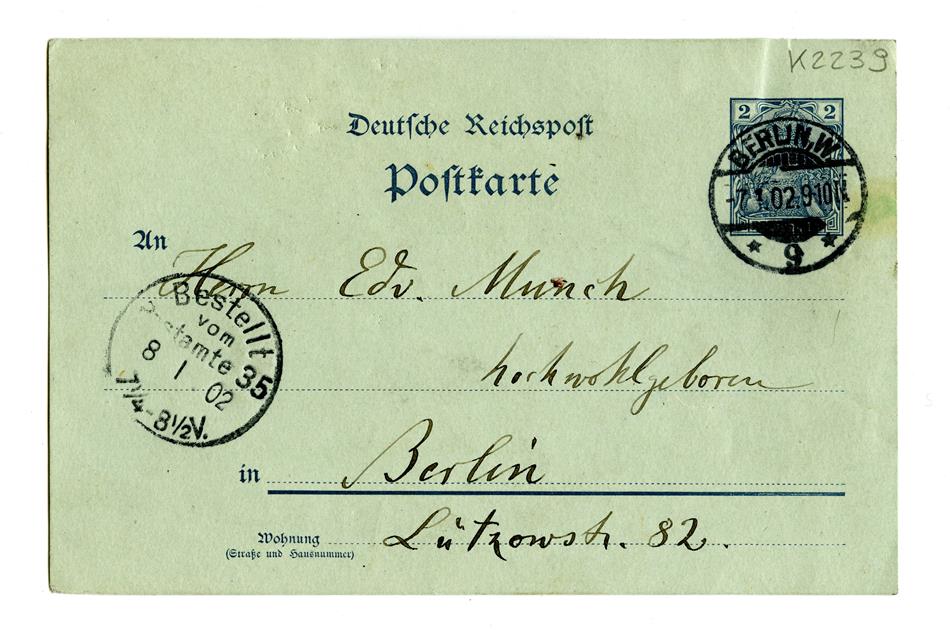 K2239
Deutsche Reichspost
Postkarte
2 2
BERLIN, W.
-7.1.02.9-10N
* 9 *
An Herrn Edv. Munch
hochwohlgeboren
in Berlin
Wohnung Lützowstr. 82.
(Straße und Hausnummer)
Bestellt
vom
Postamte 35
8 1 02
7¼-8½V.